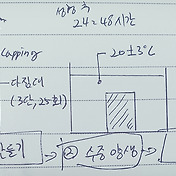 성형 후
24~48시간
lapping
20±3℃
다짐대
(3단, 25회)
만들기 ⇒ ② 수중 양생 ⇒